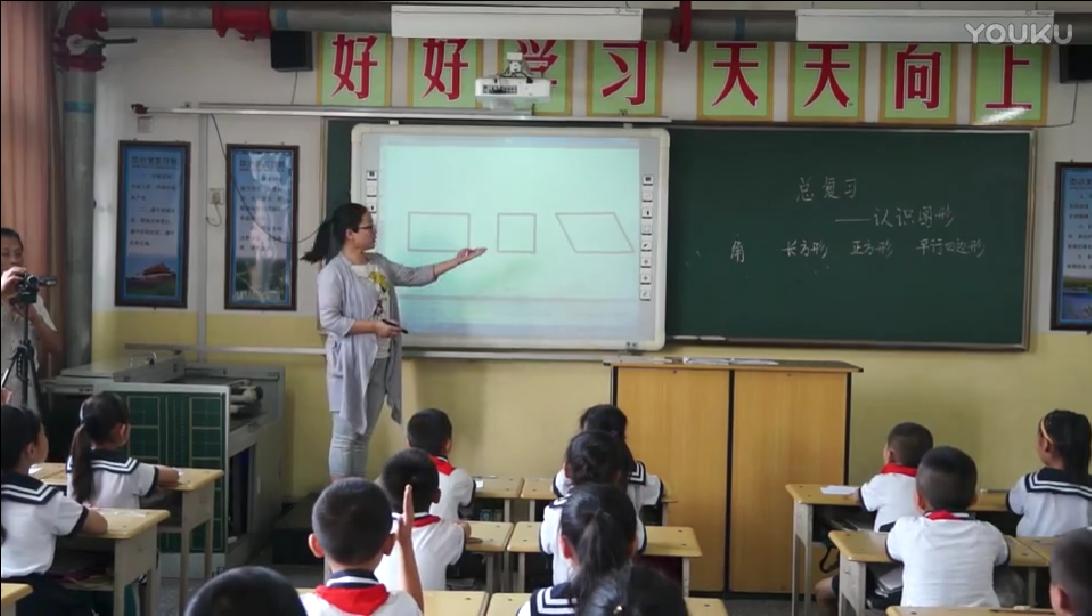 YOUKU
好好学习天天向上
总复习
——认识图形
角 长方形 正方形 平行四边形